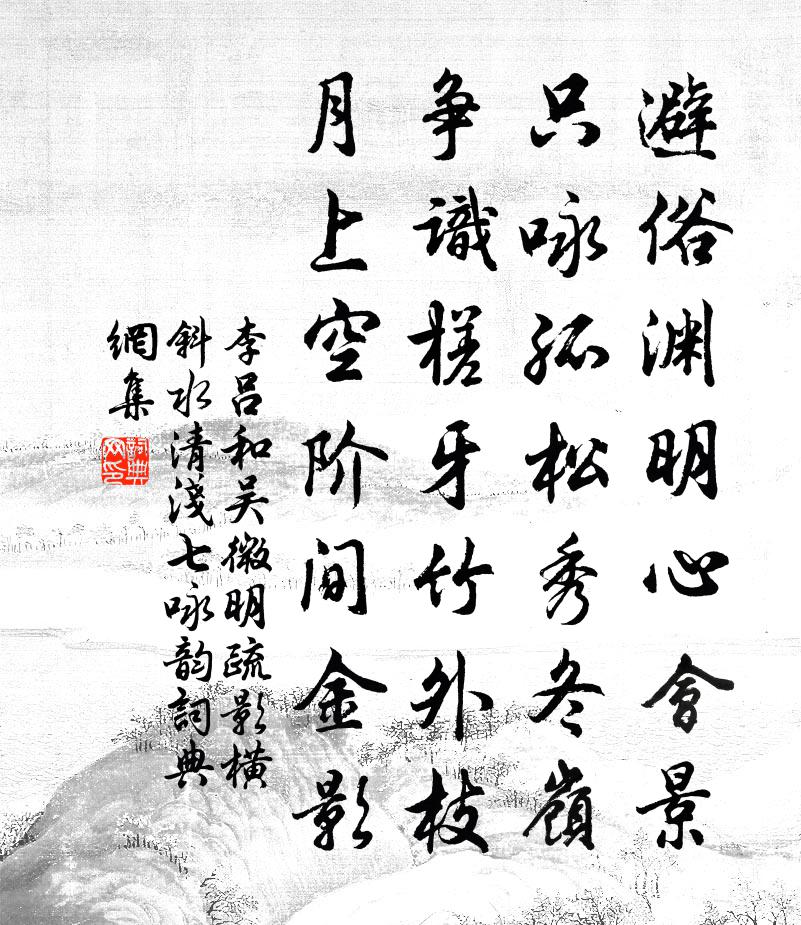 避俗渊明心會景
只咏孤松秀冬嶺
争識槎牙竹外枝
月上空阶间金影
李呂和吴微明疏影橫
斜水清淺七咏韵詞典
網集
詞典網印